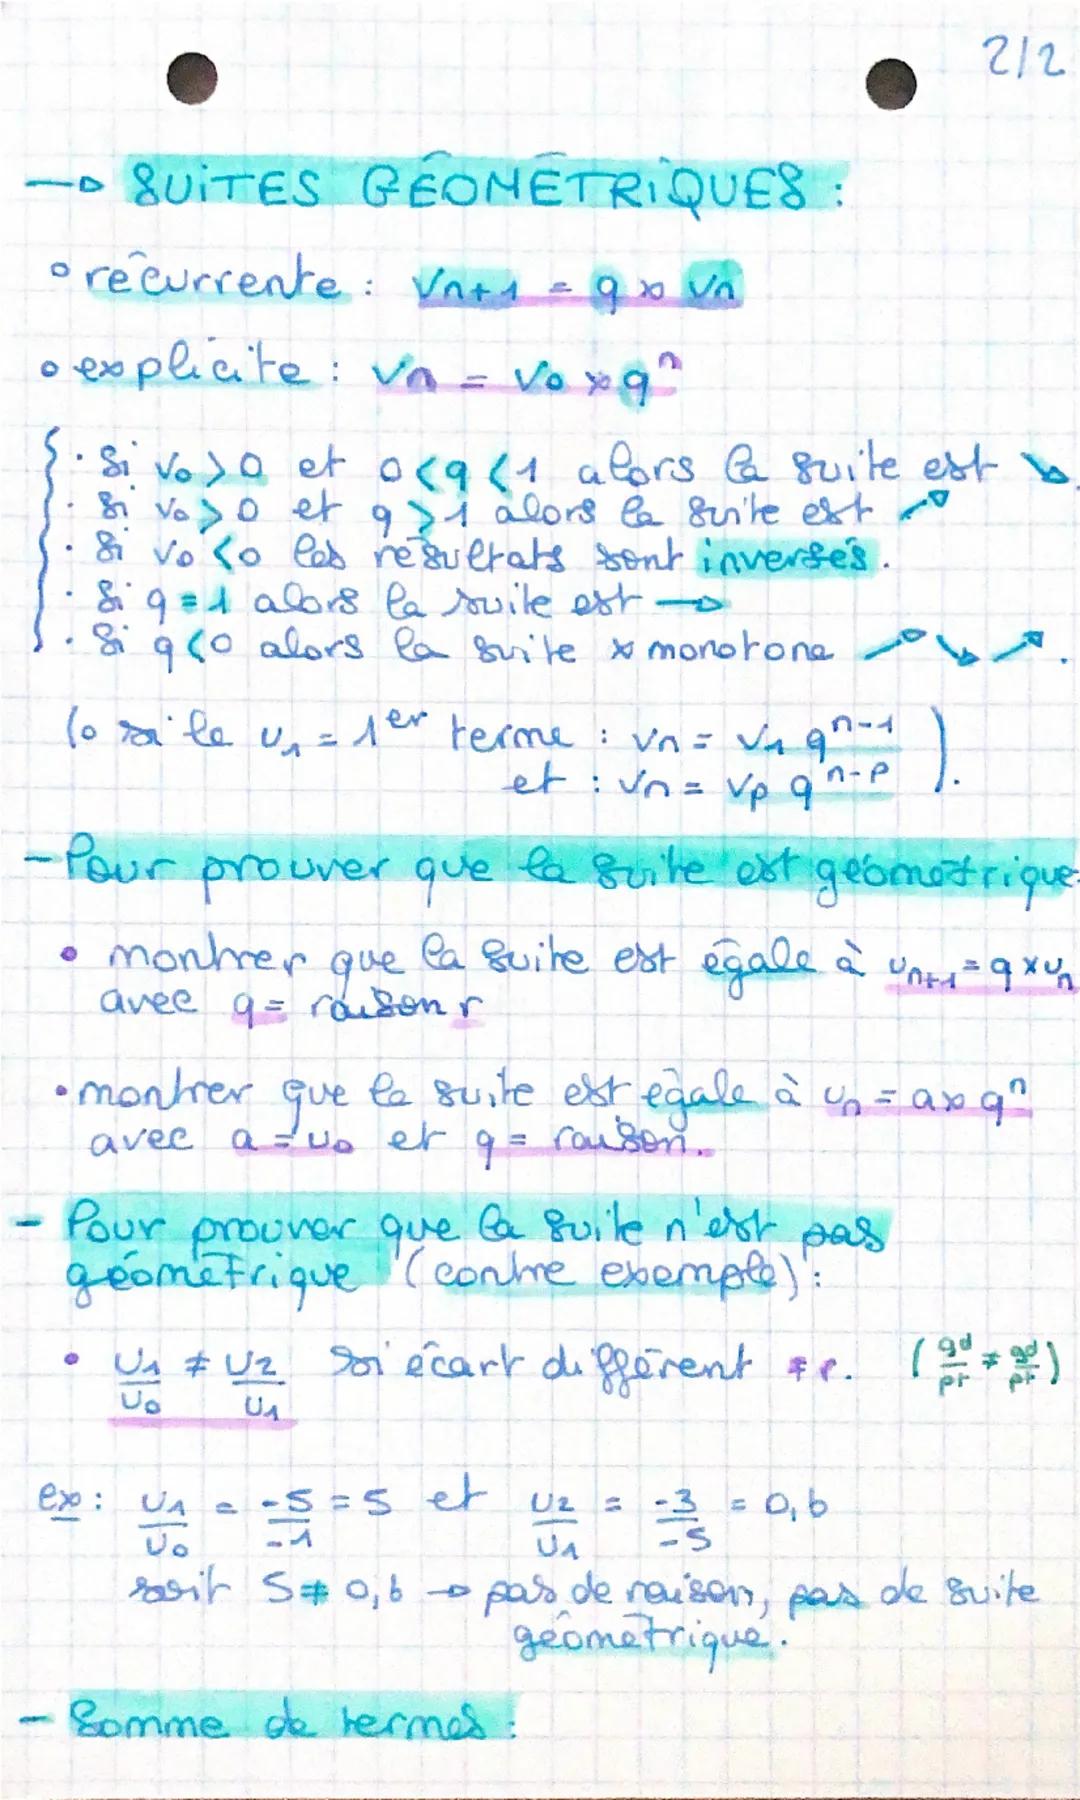 2/2
→ SUITES GÉOMÉTRIQUES :
◦ récurrente : Vn+1 = q x Vn
◦ explicite : Vn = V0 x qⁿ
{ · Si V0 > 0 et 0 < q < 1 alors la suite est ↘.
· Si V0 > 0 et q > 1 alors la suite est ↗
· Si V0 < 0 les résultats sont inversés.
· Si q = 1 alors la suite est →
· Si q < 0 alors la suite x monotone ↗ ↘ ↗.
le u1 = 1er terme : Vn = V1 qⁿ⁻¹
et : Vn = Vp qⁿ⁻ᵖ ).
- Pour prouver que la suite est géométrique:
• montrer que la suite est égale à un+1 = q x un
avec q = raison r
• montrer que la suite est égale à un = a x qⁿ
avec a = u0 et q = raison.
- Pour prouver que la suite n'est pas
géométrique (contre exemple) :
• U1/U0 ≠ U2/U1 soi écart différent ≠ r. (gd/pt ≠ gd/pt)
ex : U1/U0 = -5/-1 = 5 et U2/U1 = -3/-5 = 0,6
soit 5 ≠ 0,6 → pas de raison, pas de suite
géométrique.
- Somme de termes :